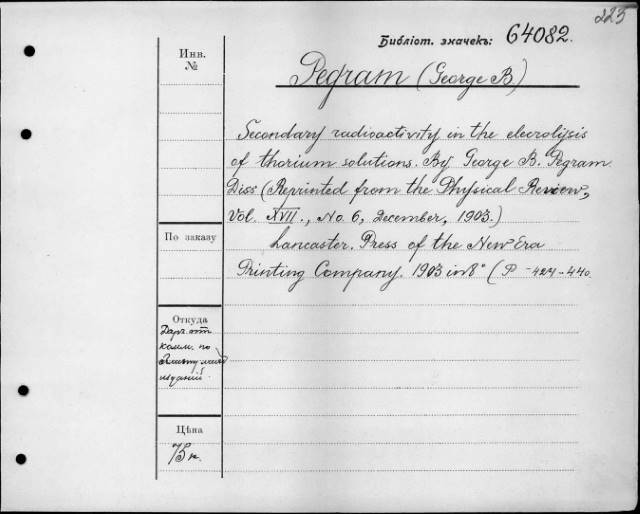 225
Библіот. значекъ: 64082.
Инв.
№
Pegram (George B)
Secondary radioactivity in the elecrolysis
of thorium solutions. By George B. Pegram
Diss (Reprinted from the Physical Review,
Vol. XVII., No. 6, December, 1903.)
По заказу
Lancaster. Press of the New Era
Printing Company. 1903 in 8° (P - 424-440.
Откуда
Даръ отъ
комм. по
изданій
Цѣна
75 к.